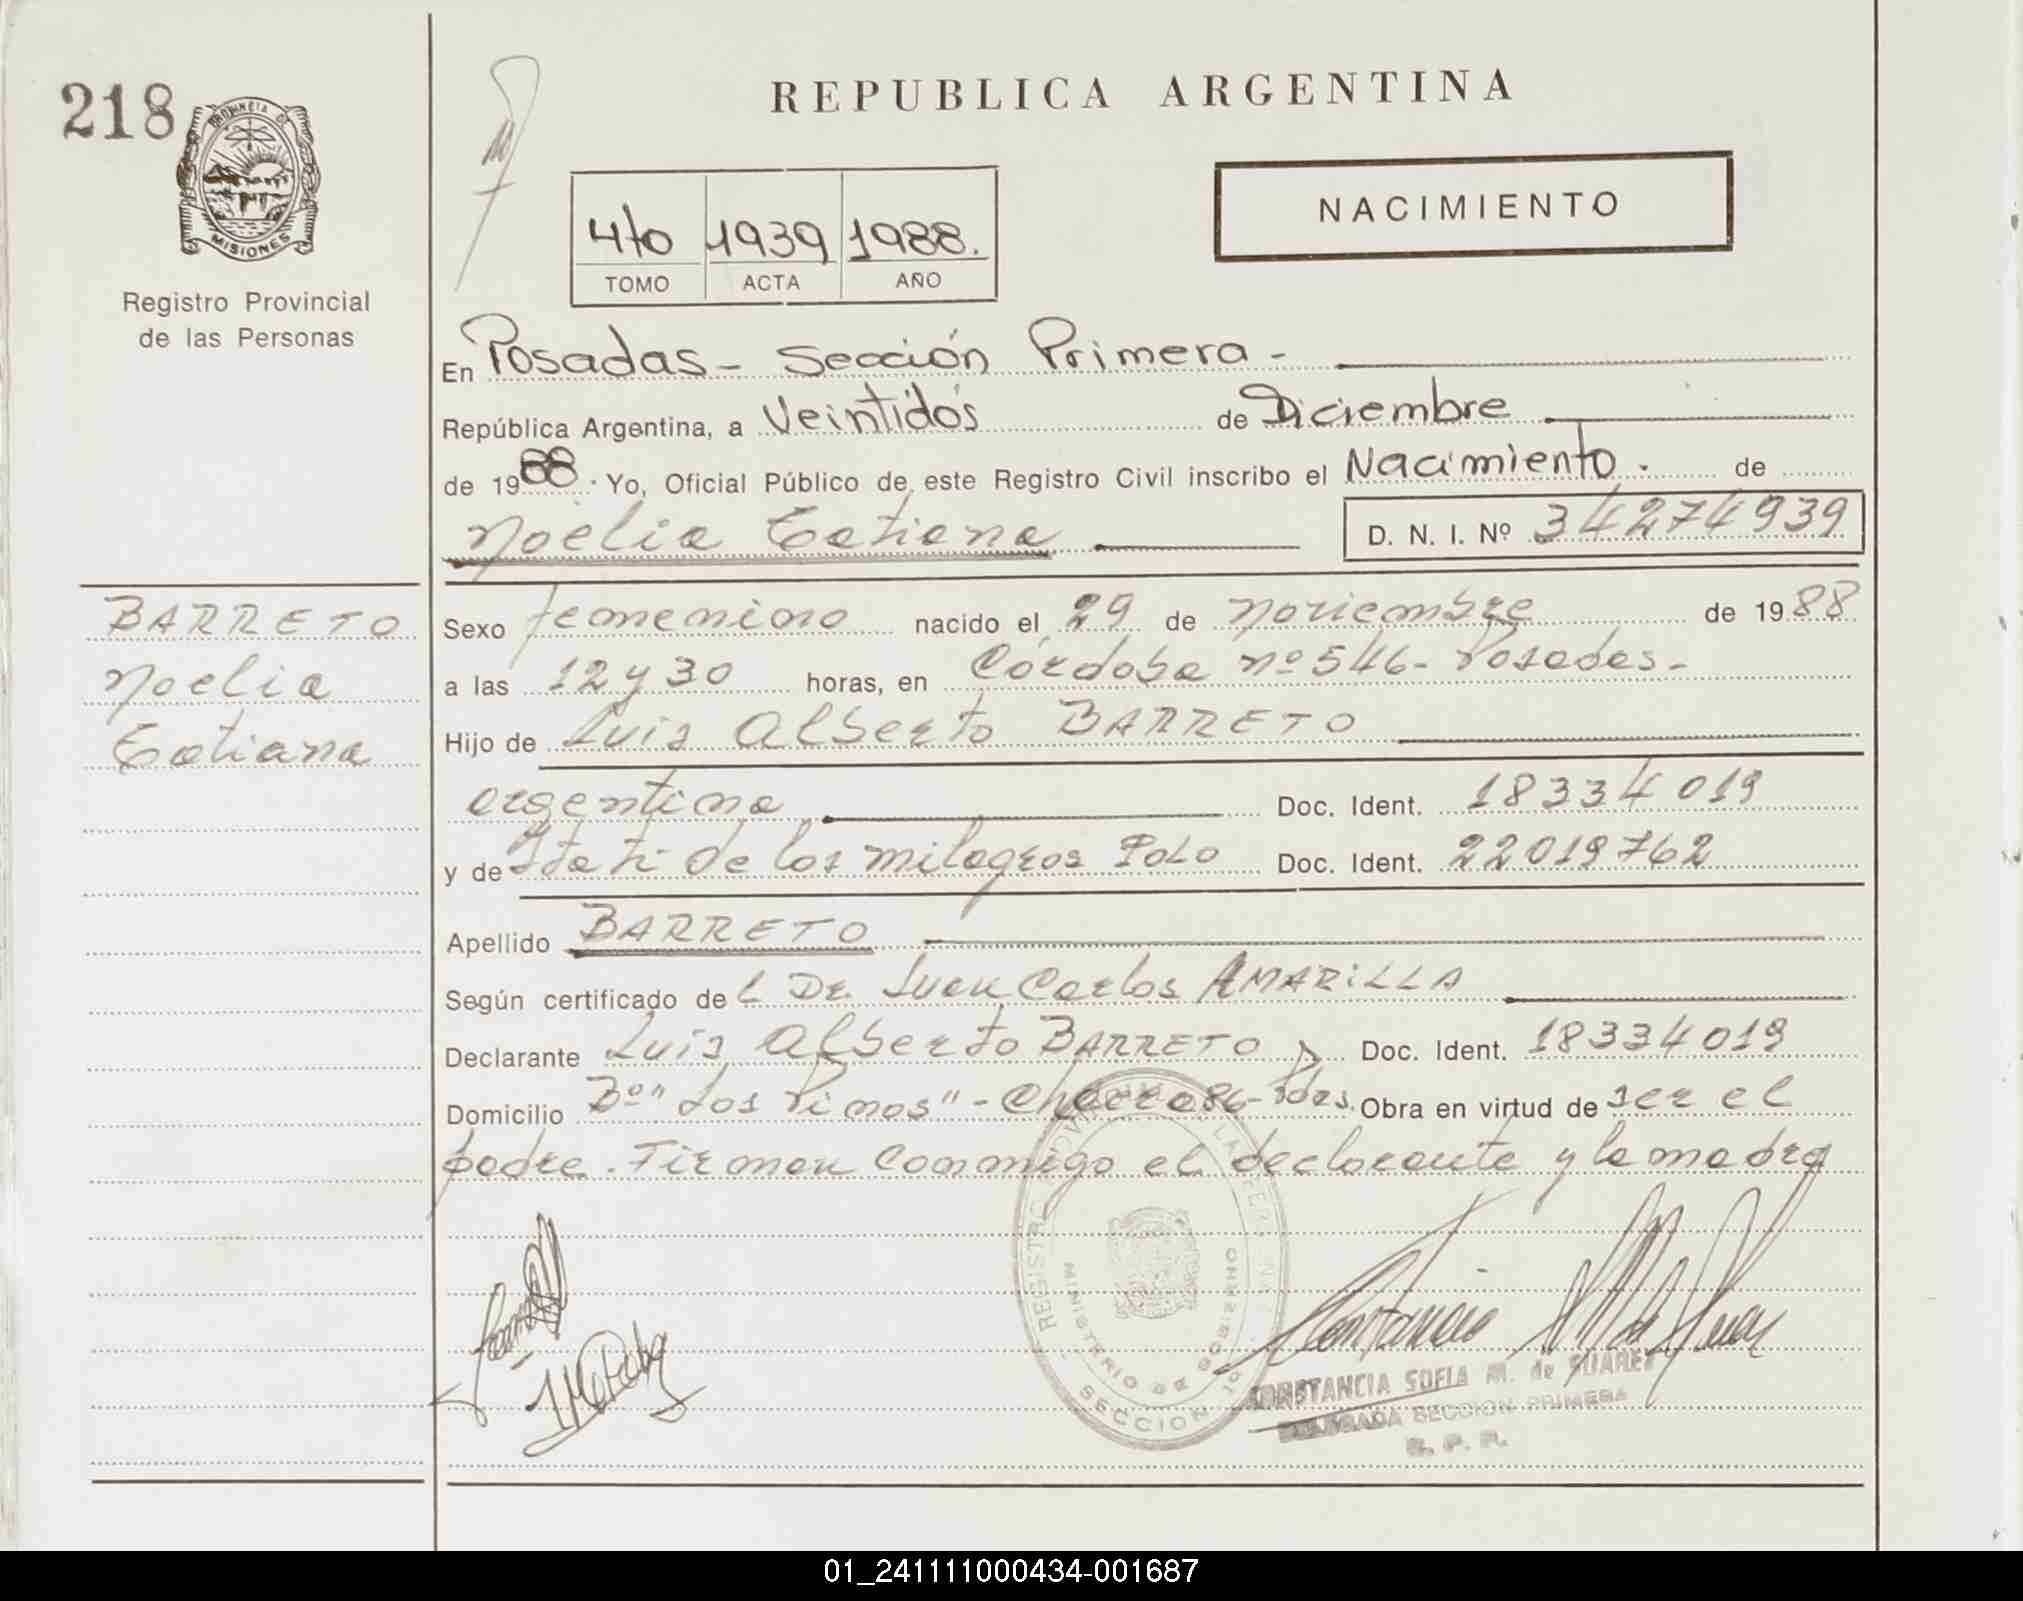 218
PROVINCIA DE
MISIONES
Registro Provincial
de las Personas
REPUBLICA ARGENTINA
NACIMIENTO
4to 1939 1988.
TOMO ACTA AÑO
En Posadas - Sección Primera -
República Argentina, a Veintidós de Diciembre
de 1988. Yo, Oficial Público de este Registro Civil inscribo el Nacimiento. de
Noelia Tatiana D. N. I. Nº 34274939
BARRETO
Noelia
Tatiana
Sexo femenino nacido el 29 de noviembre de 1988
a las 12 y 30 horas, en Córdoba nº 546 - Posadas -
Hijo de Luis Alberto BARRETO
argentina Doc. Ident. 18334019
y de Itatí de los milagros POLO Doc. Ident. 22019762
Apellido BARRETO
Según certificado del Dr. Juan Carlos AMARILLA
Declarante Luis Alberto BARRETO Doc. Ident. 18334019
Domicilio Bº "Los Pinos" - Chacra 86 - Pdas. Obra en virtud de ser el
padre. Firman conmigo el declarante y la madre
REGISTRO
MINISTERIO DE GOBIERNO
SECCION 1a
CONSTANCIA SOFIA M. de SUAREZ
DELEGADA SECCION PRIMERA
R. P. P.
01_241111000434-001687